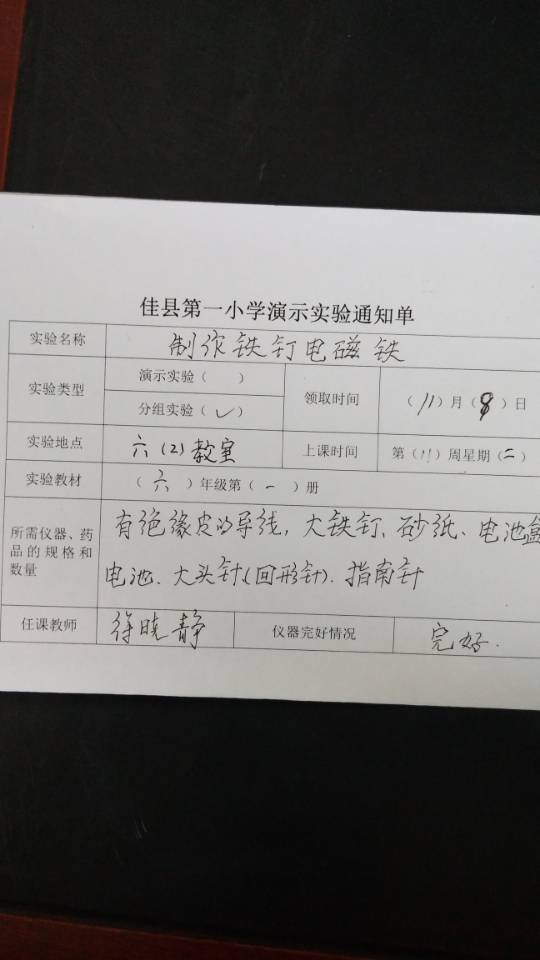 佳县第一小学演示实验通知单
实验名称 制作铁钉电磁铁
实验类型 演示实验（ ） 领取时间 （11）月（8）日
分组实验（✓）
实验地点 六（2）教室 上课时间 第（11）周星期（二）
实验教材 （六）年级第（一）册
所需仪器、药品的规格和数量
有绝缘皮的导线，大铁钉、砂纸、电池盒
电池、大头针（回形针）、指南针
任课教师 徐晓静 仪器完好情况 完好.